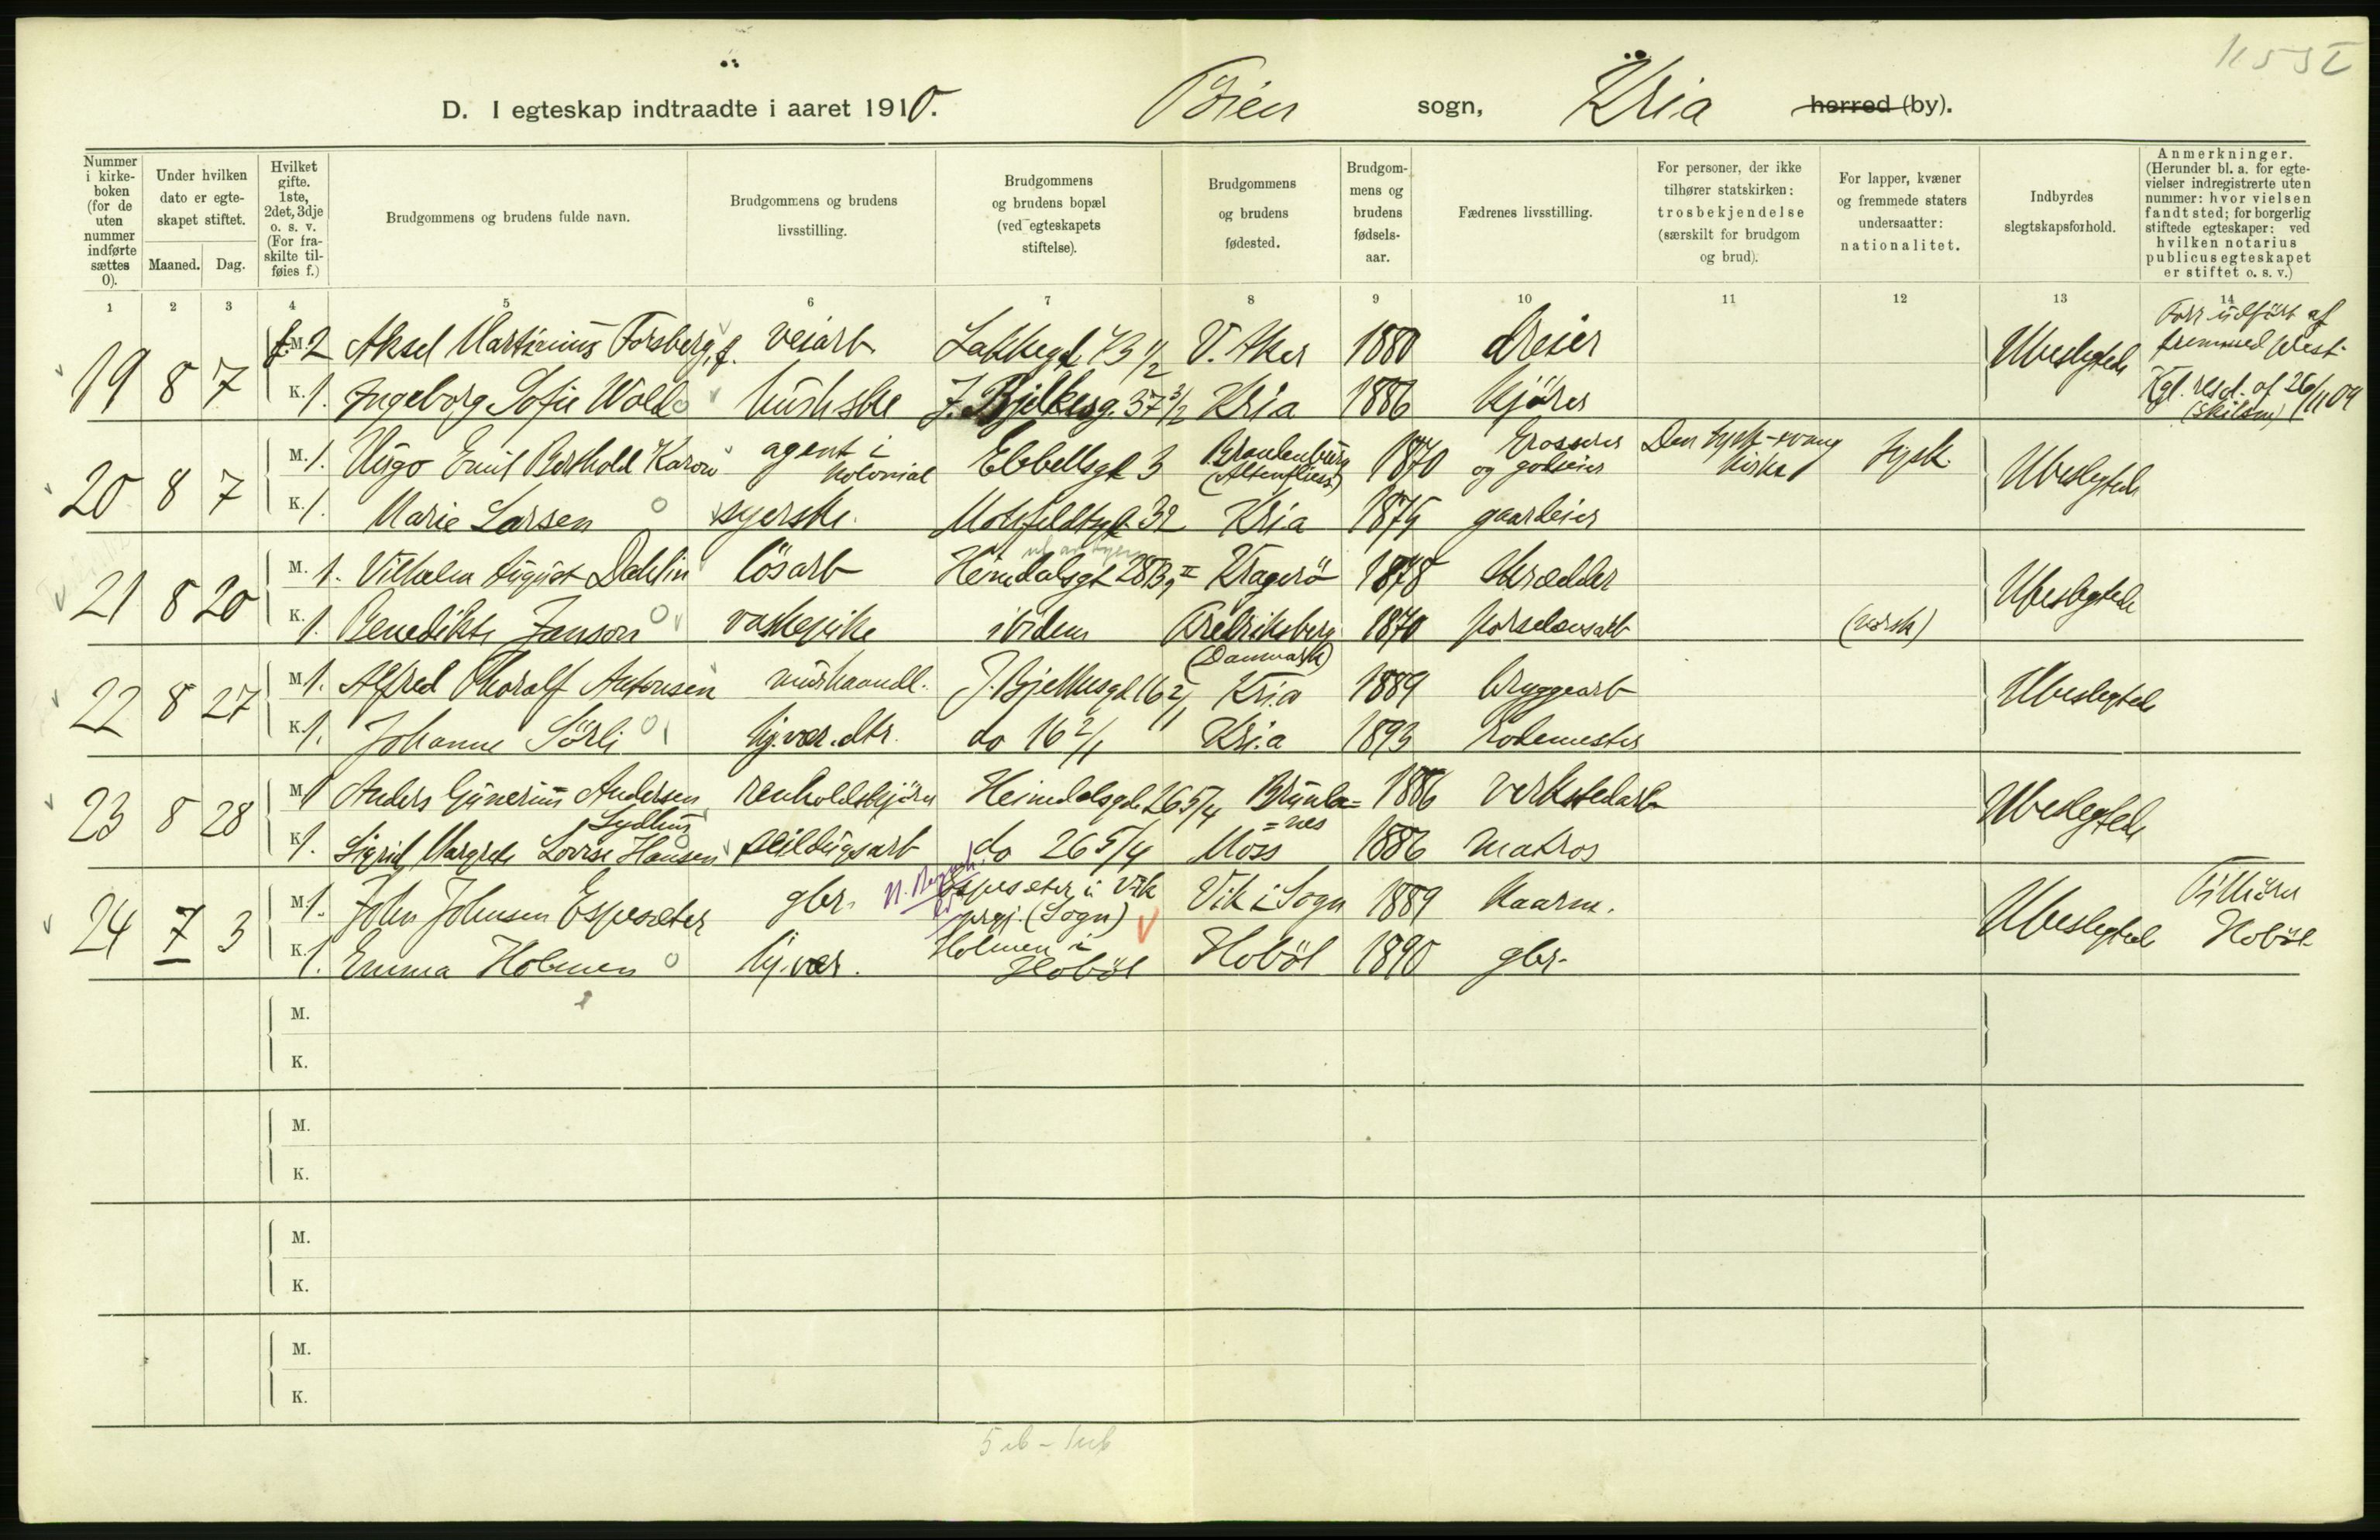 1153 I
D. I egteskap indtraadte i aaret 1910. Öien sogn, Kria herred (by).
Nummer i kirkeboken (for de uten nummer indførte sættes 0).
Under hvilken dato er egteskapet stiftet.
Maaned. Dag.
Hvilket gifte. 1ste, 2det, 3dje o. s. v. (For fraskilte tilføies f.)
Brudgommens og brudens fulde navn.
Brudgommens og brudens livsstilling.
Brudgommens og brudens bopæl (ved egteskapets stiftelse).
Brudgommens og brudens fødested.
Brudgommens og brudens fødselsaar.
Fædrenes livsstilling.
For personer, der ikke tilhører statskirken: trosbekjendelse (særskilt for brudgom og brud).
For lapper, kvæner og fremmede staters undersaatter: nationalitet.
Indbyrdes slegtskapsforhold.
Anmerkninger. (Herunder bl. a. for egtevielser indregistrerte uten nummer: hvor vielsen fandt sted; for borgerlig stiftede egteskaper: ved hvilken notarius publicus egteskapet er stiftet o. s. v.)
1 2 3 4 5 6 7 8 9 10 11 12 13 14
19 8 7 M. f. 2 Aksel Martinius Forsberg, f. veiarb. Lakkegt 73 4/2 V. Aker 1880 dreier Ubeslegtede Forr. udført af fremmed prest.
K. 1. Ingeborg Sofie Wold hushske J. Bjelkesg. 37 3/2 Kria 1886 kjører Kgl. resol. af 26/11 09 (skilsm)
20 8 7 M. 1. Hugo Emil Berthold Karow agent i kolonial Ebbellsgt 3 Brandenburg (Altenfliess) 1870 Grosserer og godseier Den tysk-evang kirke tysk Ubeslegtede
K. 1. Marie Larsen syerske. Motzfeldtsgt 32 Kria 1875 gaardeier
21 8 20 M. 1. Vilhelm August Dahlin løsarb Heimdalsgt 28 B, II Kragerø 1878 skrædder Ubeslegtede
K. 1. Benedikte Janson vaskepike ibidem Fredriksberg (Danmark) 1870 porselænsarb (norsk)
22 8 27 M. 1. Alfred Thoralf Antonsen murhaandl. J. Bjelkesgt 16 2/1 Kria 1889 bryggearb Ubeslegtede
K. 1. Johanne Sørli hj.vær. dtr. do 16 2/1 Kria 1893 rodemester
23 8 28 M. 1 Anders Gunerius Andersen Lydhus renholdskjører Heimdalsgt 26 5/4 Brunla=nes 1886 verkstedarb Ubeslegtede
K. 1. Sigrid Margrete Lovise Hansen seildugsarb do 26 5/4 Moss 1886 matros
24 7 3 M. 1. John Johnsen Espesæter gbr. Espesæter i Vik prgj. (Sogn) Vik i Sogn 1889 kaarm. Ubeslegtede Tilhører Hobøl
K. 1. Emma Holmen hj.vær. Holmen i Hobøl Hobøl 1890 gbr.
M.
K.
M.
K.
M.
K.
M.
K.